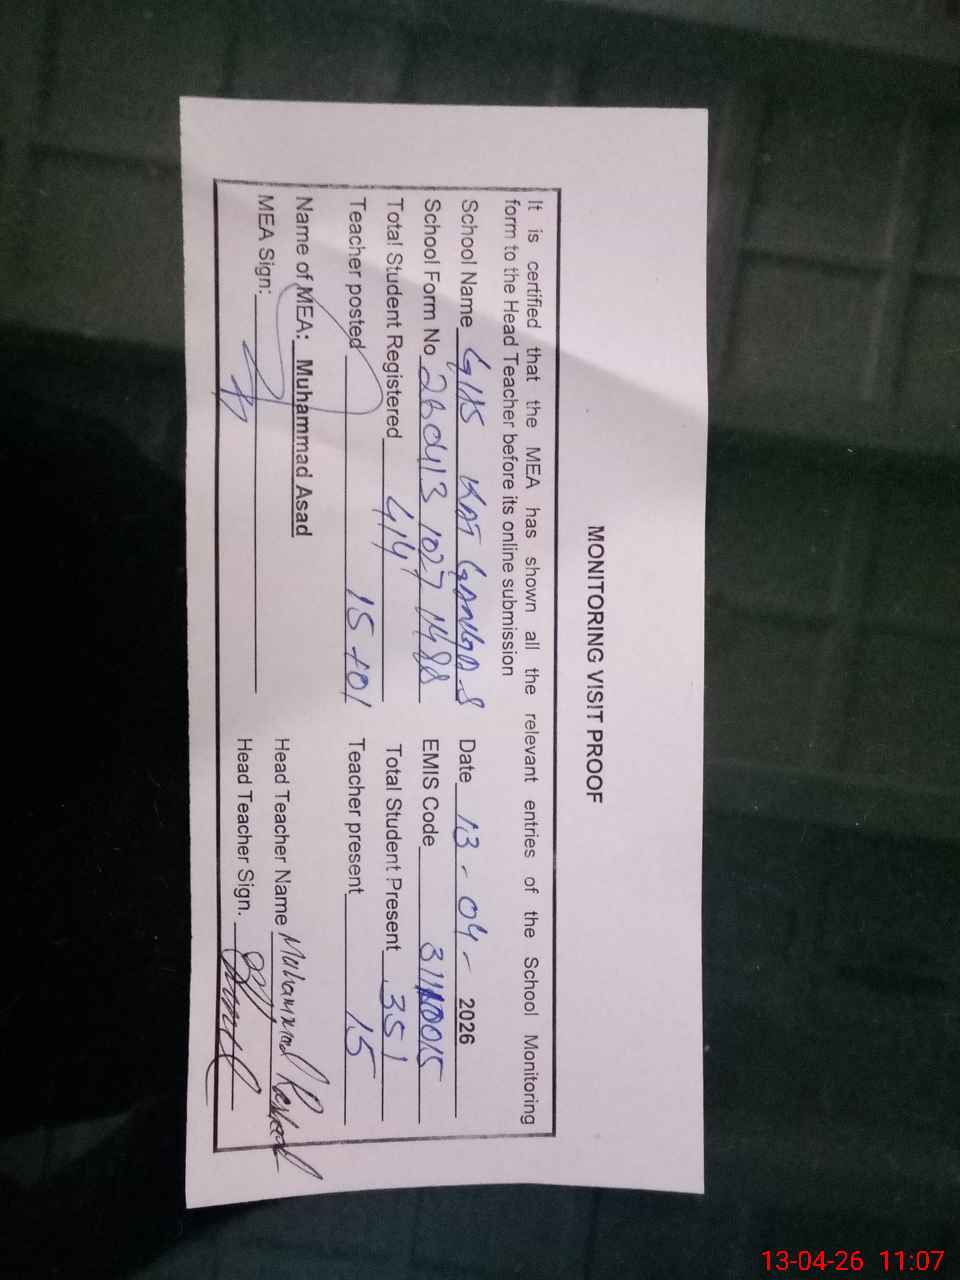 MONITORING VISIT PROOF
It is certified that the MEA has shown all the relevant entries of the School Monitoring
form to the Head Teacher before its online submission
School Name GHS KOT GANGA S Date 13-04-2026
School Form No 260413 1027 1488 EMIS Code 31110015
Total Student Registered 414 Total Student Present 351
Teacher posted 15+01 Teacher present 15
Name of MEA: Muhammad Asad Head Teacher Name Muhammad Rashad
MEA Sign: Head Teacher Sign.
13-04-26 11:07